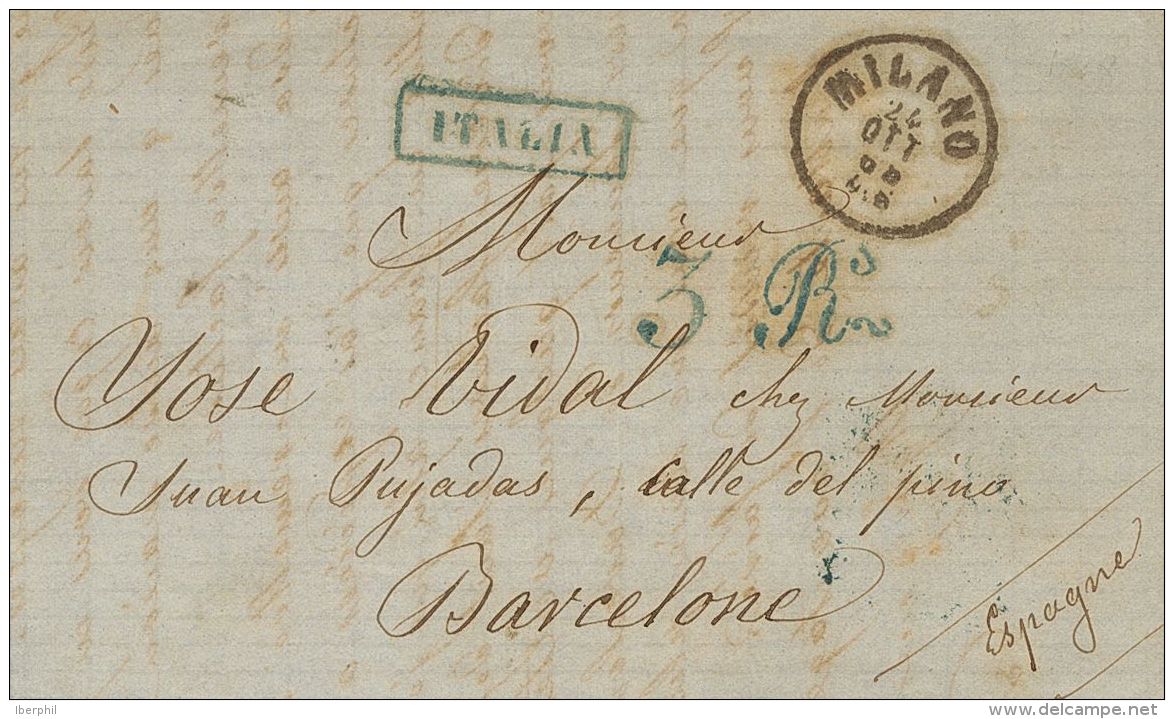 ITALIA
MILANO
24
OTT
Monsieur
3 Rs
Yose Vidal chez Monsieur
Juan Pujadas, calle del pino
Barcelone
Espagne
Iberphil
delcampe.net